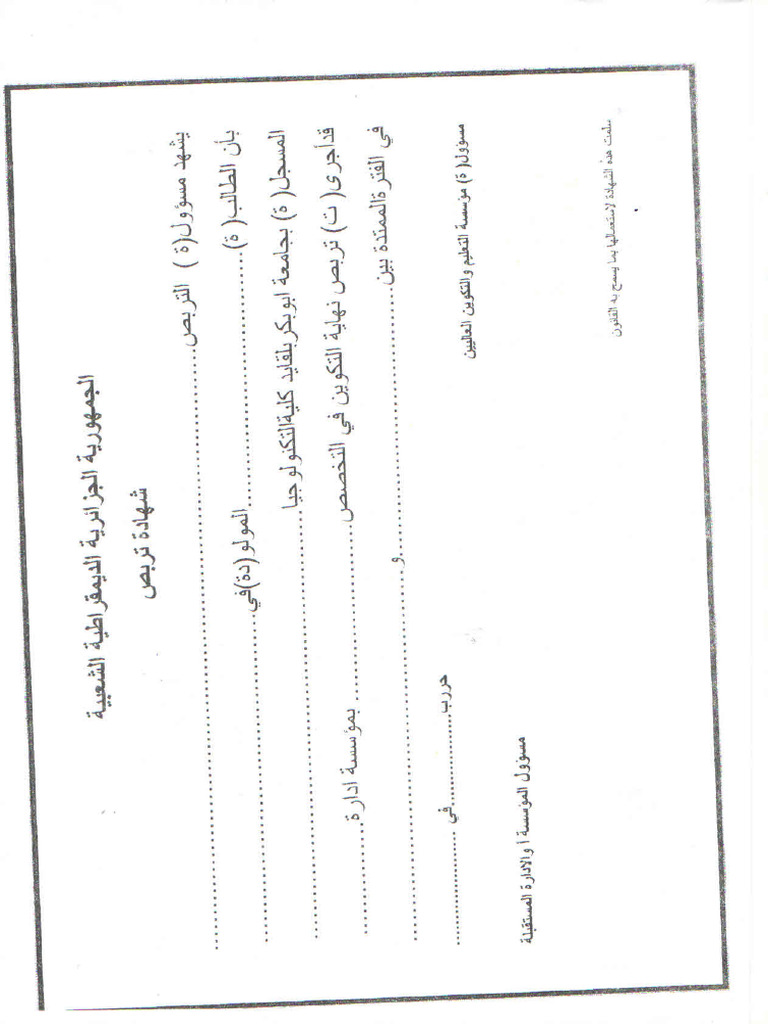 الجمهورية الجزائرية الديمقراطية الشعبية
شهادة تربص
يشهد مسؤول(ة ) التربص................................................................
بأن الطالب( ة)................................المولو(دة)في................................
المسجل(ة) بجامعة ابوبكربلقايد كليةالتكنولوجيا................................................
قدأجرى( ت) تربص نهاية التكوين في التخصص..................... بمؤسسة ادارة................
في الفترةالممتدة بين................................و................................................
حررب................في ................
مسؤول(ة) مؤسسة التعليم والتكوين العاليين
مسؤول المؤسسة ا والادارة المستقبلة
سلمت هذه الشهادة لاستعمالها بما يسمح به القانون